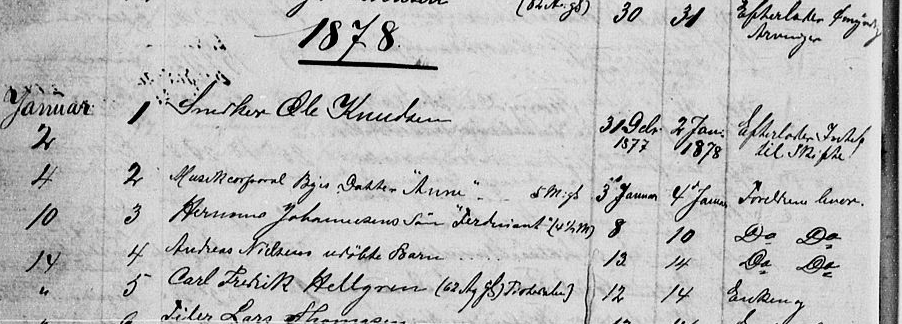 (82 A. gl) 30 31 Efterlader Umyndig
Arvinger
1878
Januar
2 1 Snedker Ole Knudsen 31 Decbr 1877 2 Jan. 1878 Efterlader Intet til Skifte
4 2 Musikcorporal Datter "Anna" 5 M. gl 3 Januar 4 Januar Foreldrene lever.
10 3 Hermann Johannesens Søn "Ferdinant" 8 10 Do Do
14 4 Andreas Nielsens udøbte Barn 13 14 Do Do
" 5 Carl Fredrik Hellgren (62 A. gl) 12 14 Enken
Lars Thomasen